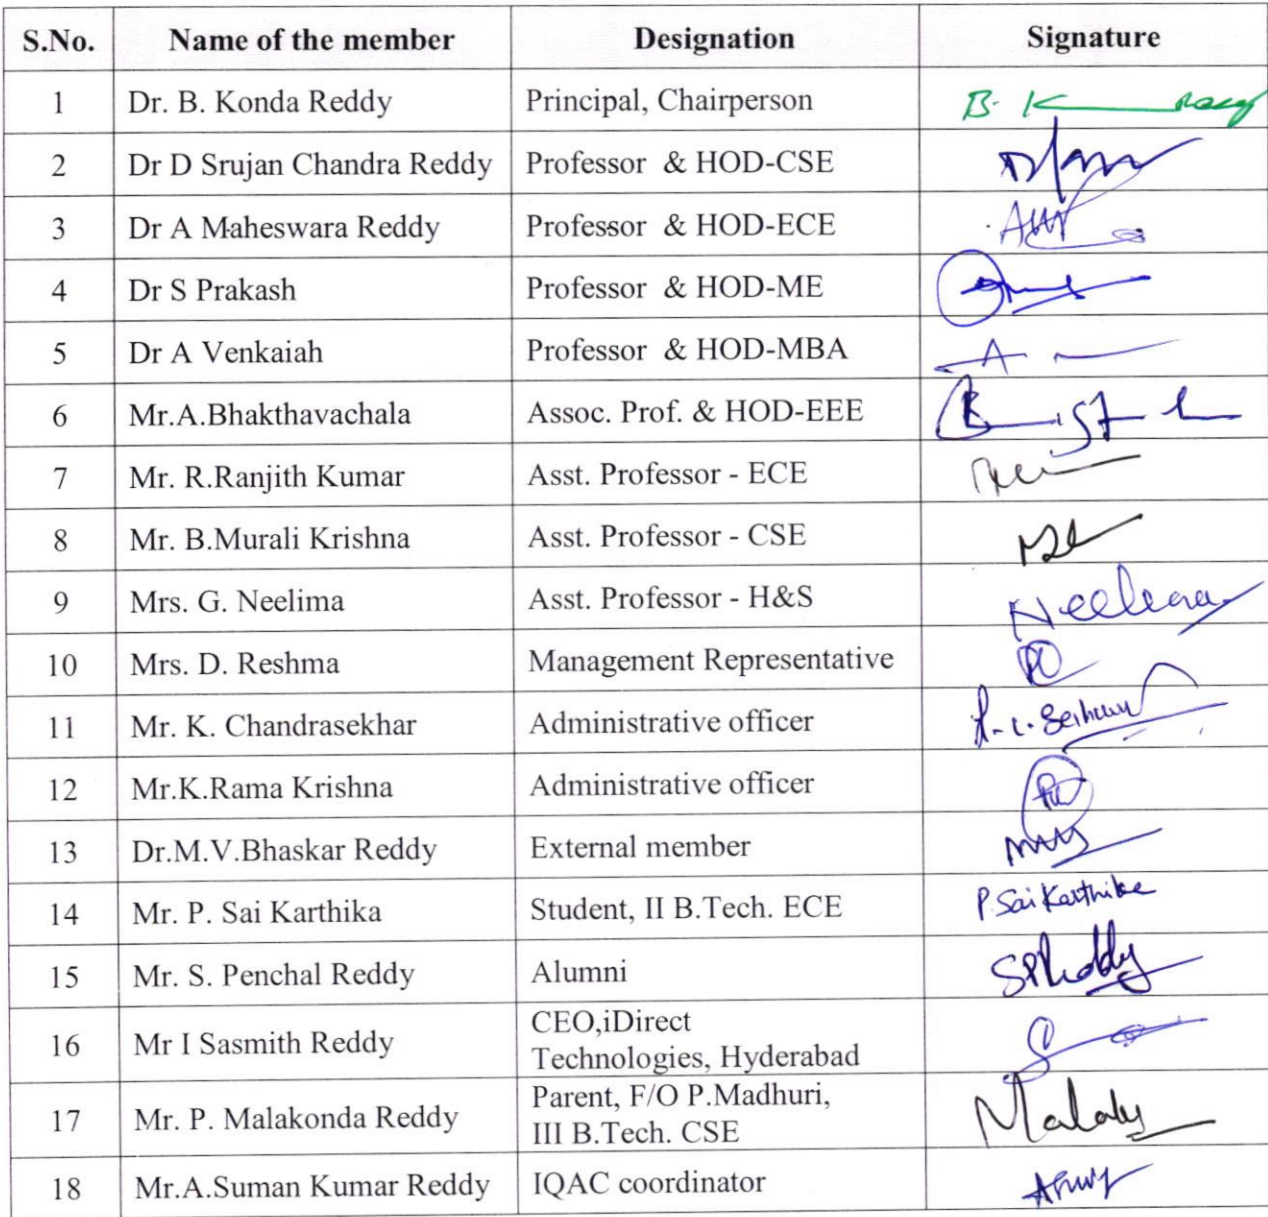 S.No. Name of the member Designation Signature
1 Dr. B. Konda Reddy Principal, Chairperson B. K Reddy
2 Dr D Srujan Chandra Reddy Professor & HOD-CSE
3 Dr A Maheswara Reddy Professor & HOD-ECE
4 Dr S Prakash Professor & HOD-ME
5 Dr A Venkaiah Professor & HOD-MBA A
6 Mr.A.Bhakthavachala Assoc. Prof. & HOD-EEE
7 Mr. R.Ranjith Kumar Asst. Professor - ECE
8 Mr. B.Murali Krishna Asst. Professor - CSE
9 Mrs. G. Neelima Asst. Professor - H&S Neelima
10 Mrs. D. Reshma Management Representative
11 Mr. K. Chandrasekhar Administrative officer
12 Mr.K.Rama Krishna Administrative officer
13 Dr.M.V.Bhaskar Reddy External member
14 Mr. P. Sai Karthika Student, II B.Tech. ECE P. Sai Karthika
15 Mr. S. Penchal Reddy Alumni SPReddy
16 Mr I Sasmith Reddy CEO,iDirect
Technologies, Hyderabad
17 Mr. P. Malakonda Reddy Parent, F/O P.Madhuri,
III B.Tech. CSE
18 Mr.A.Suman Kumar Reddy IQAC coordinator